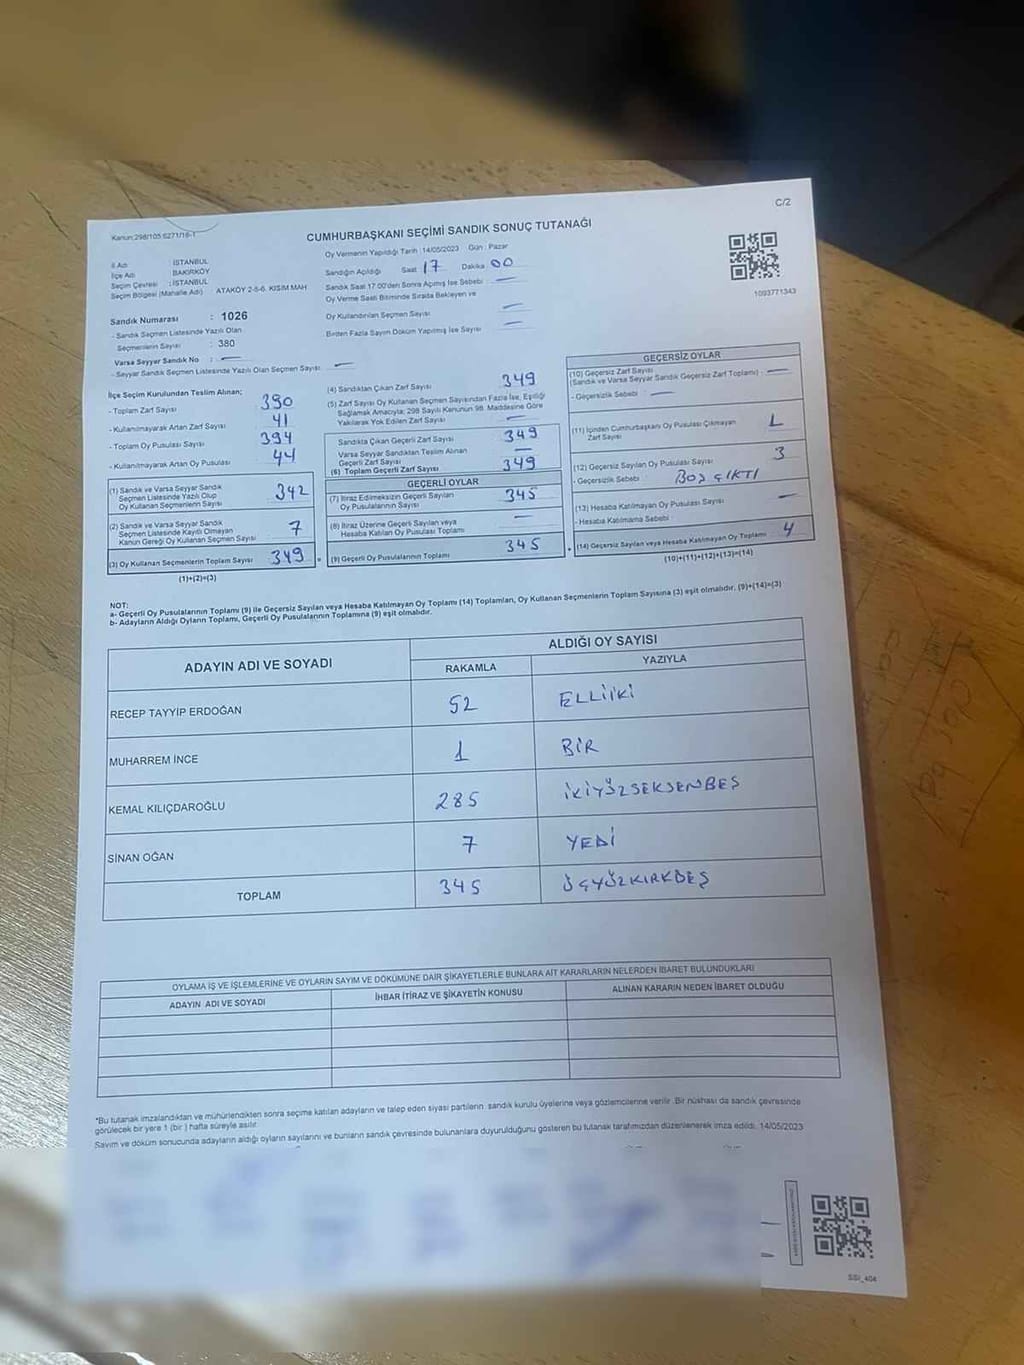 Kanun:298/105 6271/16-1
C/2
CUMHURBAŞKANI SEÇİMİ SANDIK SONUÇ TUTANAĞI
İl Adı İSTANBUL
İlçe Adı BAKIRKÖY
Seçim Çevresi : İSTANBUL
Seçim Bölgesi (Mahalle Adı) ATAKÖY 2-5-6. KISIM MAH
Sandık Numarası : 1026
- Sandık Seçmen Listesinde Yazılı Olan
Seçmenlerin Sayısı : 380
Varsa Seyyar Sandık No : —
- Seyyar Sandık Seçmen Listesinde Yazılı Olan Seçmen Sayısı —
Oy Vermenin Yapıldığı Tarih : 14/05/2023 Gün : Pazar
Sandığın Açıldığı Saat 17 Dakika 00
Sandık Saat 17:00'den Sonra Açılmış İse Sebebi : —
Oy Verme Saati Bitiminde Sırada Bekleyen ve
Oy Kullandırılan Seçmen Sayısı —
Birden Fazla Sayım Döküm Yapılmış İse Sayısı —
1093771343
İlçe Seçim Kurulundan Teslim Alınan;
- Toplam Zarf Sayısı 390
- Kullanılmayarak Artan Zarf Sayısı 41
- Toplam Oy Pusulası Sayısı 394
- Kullanılmayarak Artan Oy Pusulası 44
(1) Sandık ve Varsa Seyyar Sandık
Seçmen Listesinde Yazılı Olup
Oy Kullanan Seçmenlerin Sayısı 342
(2) Sandık ve Varsa Seyyar Sandık
Seçmen Listesinde Kayıtlı Olmayan
Kanun Gereği Oy Kullanan Seçmen Sayısı 7
(3) Oy Kullanan Seçmenlerin Toplam Sayısı 349
(1)+(2)=(3)
(4) Sandıktan Çıkan Zarf Sayısı 349
(5) Zarf Sayısı Oy Kullanan Seçmen Sayısından Fazla İse, Eşitliği
Sağlamak Amacıyla; 298 Sayılı Kanunun 98. Maddesine Göre
Yakılarak Yok Edilen Zarf Sayısı —
Sandıkta Çıkan Geçerli Zarf Sayısı 349
Varsa Seyyar Sandıktan Teslim Alınan
Geçerli Zarf Sayısı —
(6) Toplam Geçerli Zarf Sayısı 349
GEÇERLİ OYLAR
(7) İtiraz Edilmeksizin Geçerli Sayılan
Oy Pusulalarının Sayısı 345
(8) İtiraz Üzerine Geçerli Sayılan veya
Hesaba Katılan Oy Pusulası Toplamı —
(9) Geçerli Oy Pusulalarının Toplamı 345
GEÇERSİZ OYLAR
(10) Geçersiz Zarf Sayısı
(Sandık ve Varsa Seyyar Sandık Geçersiz Zarf Toplamı) : —
- Geçersizlik Sebebi : —
(11) İçinden Cumhurbaşkanı Oy Pusulası Çıkmayan
Zarf Sayısı 1
(12) Geçersiz Sayılan Oy Pusulası Sayısı 3
- Geçersizlik Sebebi : BOŞ ÇIKTI
(13) Hesaba Katılmayan Oy Pusulası Sayısı —
- Hesaba Katılmama Sebebi :
(14) Geçersiz Sayılan veya Hesaba Katılmayan Oy Toplamı 4
(10)+(11)+(12)+(13)=(14)
NOT:
a- Geçerli Oy Pusulalarının Toplamı (9) ile Geçersiz Sayılan veya Hesaba Katılmayan Oy Toplamı (14) Toplamları, Oy Kullanan Seçmenlerin Toplam Sayısına (3) eşit olmalıdır. (9)+(14)=(3)
b- Adayların Aldığı Oyların Toplamı, Geçerli Oy Pusulalarının Toplamına (9) eşit olmalıdır.
ADAYIN ADI VE SOYADI ALDIĞI OY SAYISI
RAKAMLA YAZIYLA
RECEP TAYYİP ERDOĞAN 52 ELLİİKİ
MUHARREM İNCE 1 BİR
KEMAL KILIÇDAROĞLU 285 İKİYÜZSEKSENBEŞ
SİNAN OĞAN 7 YEDİ
TOPLAM 345 ÜÇYÜZKIRKBEŞ
OYLAMA İŞ VE İŞLEMLERİNE VE OYLARIN SAYIM VE DÖKÜMÜNE DAİR ŞİKAYETLERLE BUNLARA AİT KARARLARIN NELERDEN İBARET BULUNDUKLARI
ADAYIN ADI VE SOYADI İHBAR İTİRAZ VE ŞİKAYETİN KONUSU ALINAN KARARIN NEDEN İBARET OLDUĞU
*Bu tutanak imzalandıktan ve mühürlendikten sonra seçime katılan adayların ve talep eden siyasi partilerin sandık kurulu üyelerine veya gözlemcilerine verilir. Bir nüshası da sandık çevresinde
görülecek bir yere 1 (bir ) hafta süreyle asılır.
Sayım ve döküm sonucunda adayların aldığı oyların sayılarını ve bunların sandık çevresinde bulunanlara duyurulduğunu gösteren bu tutanak tarafımızdan düzenlenerek imza edildi. 14/05/2023
SSI_404